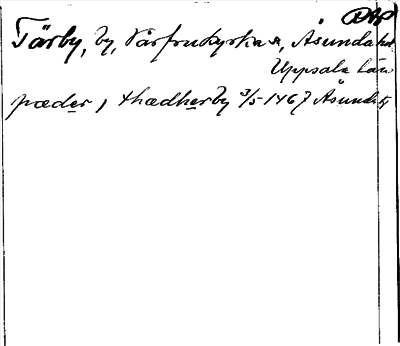 DAP
Tärby, by, Vårfrukyrka sn, Åsunda hd
Uppsala län
pæder, thædherby 3/5 1467 Åsunda